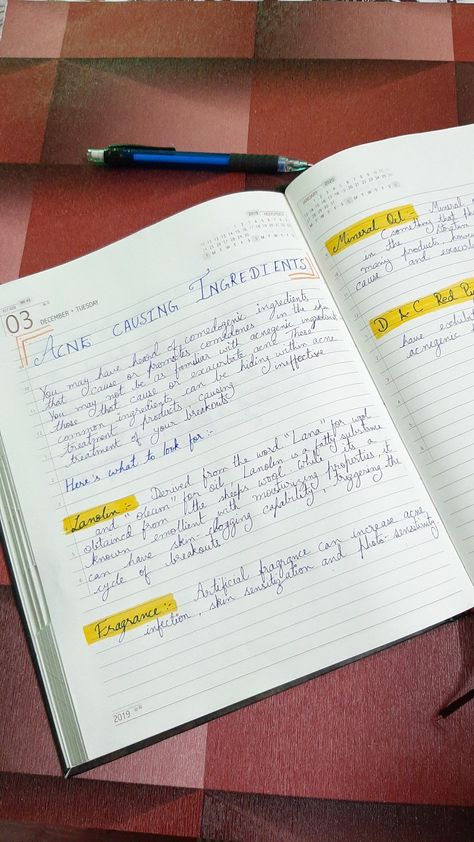 03
DECEMBER • TUESDAY
ACNE CAUSING INGREDIENTS
You may have heard of comedogenic ingredients
that cause or promotes comedones in the skin.
You may not be as familiar with acnegenic ingredient
those that cause or exacerbate acne. These
common ingredients can be hiding within acne
treatment products causing ineffective
treatment of your breakouts.
Here's what to look for :-
Lanolin :- Derived from the word "Lana" for wool
and "oleum" for oil, Lanolin is a fatty substance
obtained from the sheeps wool. While its a
known emollient with moisturizing properties, it
can have skin-clogging capability, triggering the
cycle of breakouts.
Fragrance :- Artificial fragrance can increase acne
infection, skin sensitization and photo-sensitivity.
2019
JANUARY 2020
Mineral Oil :- Mineral
(something that
in the
many products, know
cause and exacer
D & C Red
have
acnegenic